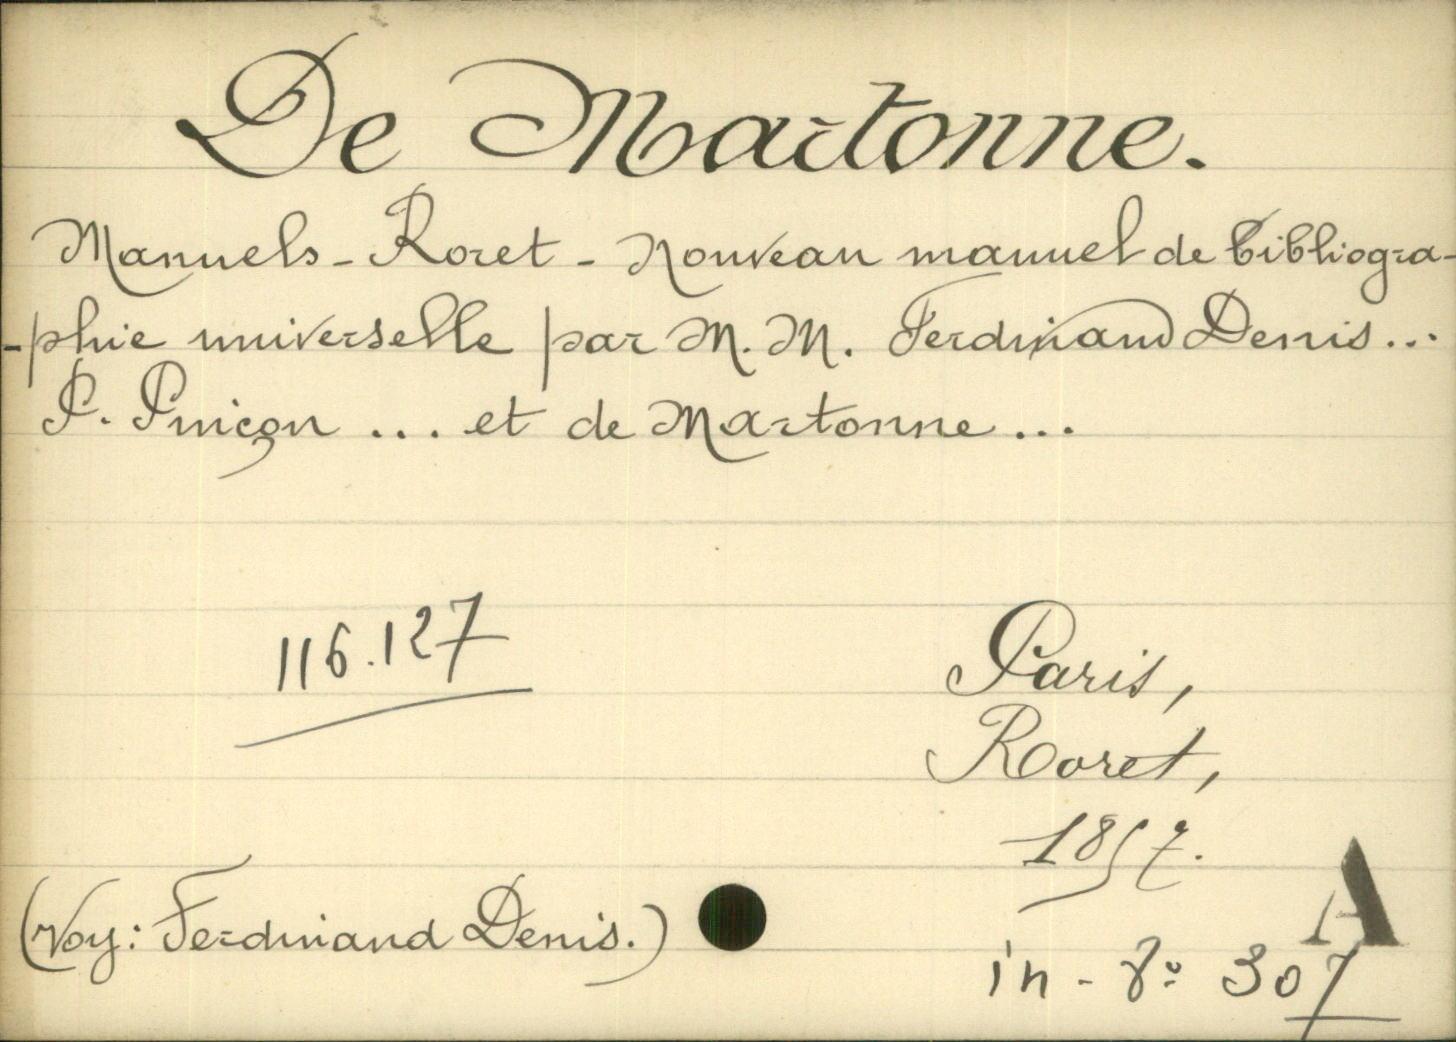 De Martonne.
Manuels-Roret - Nouveau manuel de bibliogra-
-phie universelle par M. M. Ferdinand Denis...
P. Pinçon ... et de Martonne ...
116.127
Paris,
Roret,
1857.
A
(Voy: Ferdinand Denis.)
in-8º 307